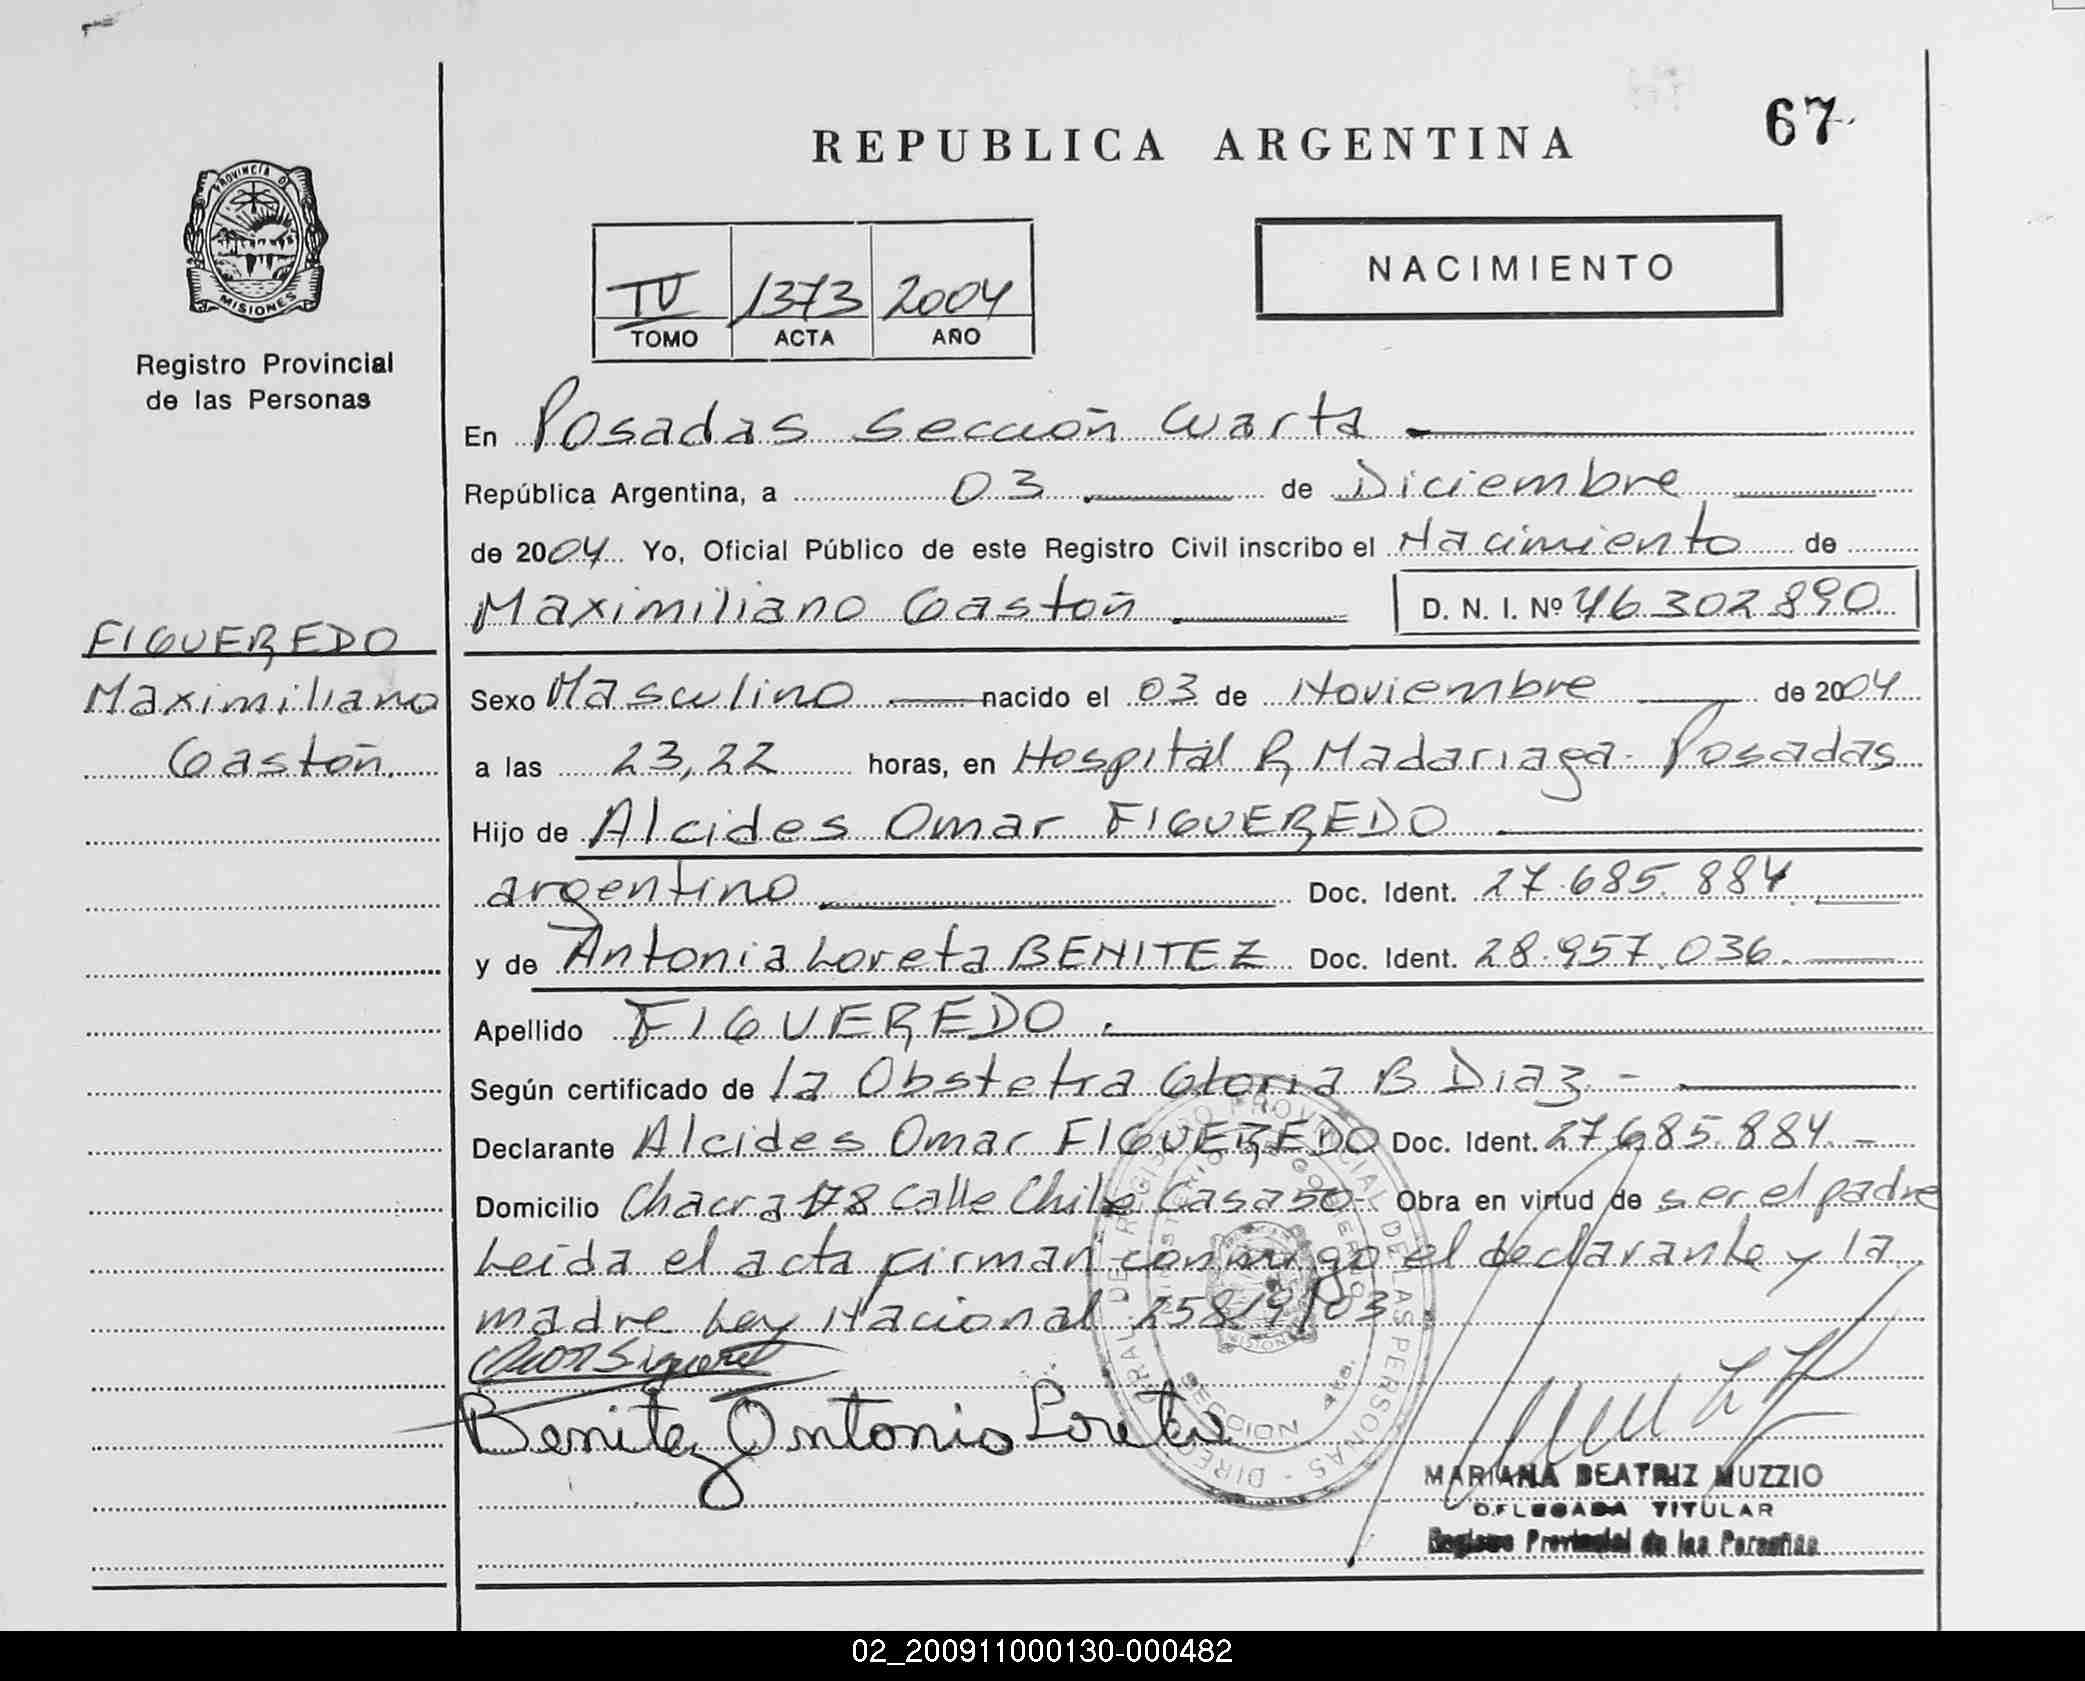 67
REPUBLICA ARGENTINA
PROVINCIA DE
MISIONES
Registro Provincial
de las Personas
IV 1373 2004
TOMO ACTA AÑO
NACIMIENTO
En Posadas Sección Cuarta
República Argentina, a 03 de Diciembre
de 2004 Yo, Oficial Público de este Registro Civil inscribo el Nacimiento de
Maximiliano Gastón D. N. I. Nº 46 302 890
FIGUEREDO
Maximiliano
Gastón
Sexo Masculino nacido el 03 de Noviembre de 2004
a las 23,22 horas, en Hospital R Madariaga - Posadas
Hijo de Alcides Omar FIGUEREDO
argentino Doc. Ident. 27.685.884
y de Antonia Loreta BENITEZ Doc. Ident. 28.957.036.
Apellido FIGUEREDO.
Según certificado de la Obstetra Gloria B Diaz -
Declarante Alcides Omar FIGUEREDO Doc. Ident. 27.685.884. -
Domicilio Chacra 178 Calle Chile Casa 50 - Obra en virtud de ser el padre
Leida el acta firman conmigo el declarante y la
madre Ley Nacional 25819/03
Benitez Antonia Loreta
MARIANA BEATRIZ MUZZIO
DELEGADA TITULAR
Registro Provincial de las Personas
02_200911000130-000482